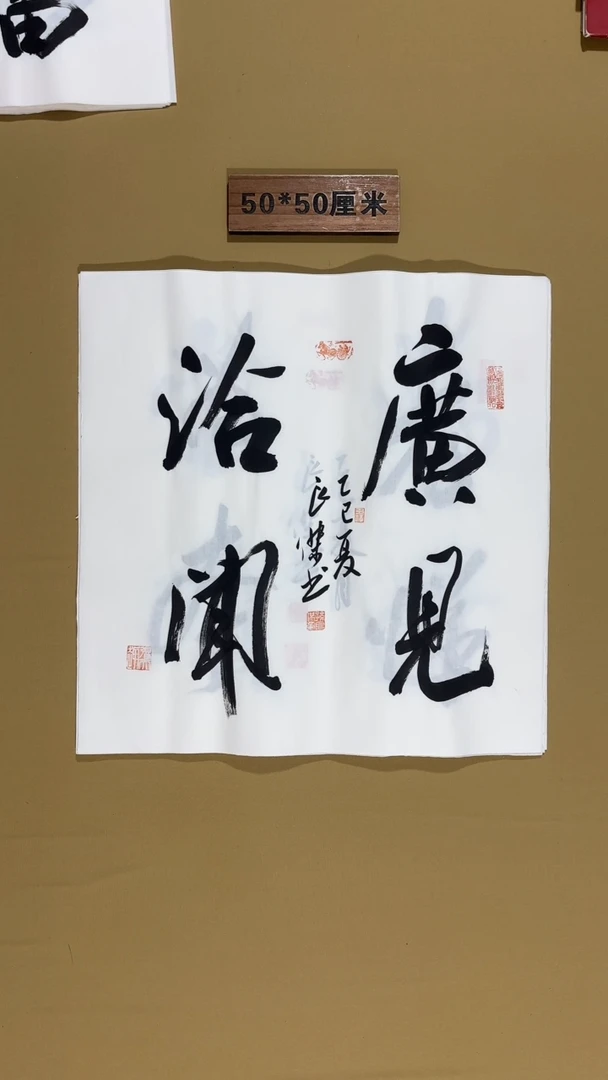 50*50厘米
廣見
洽聞
乙巳夏
良傑书